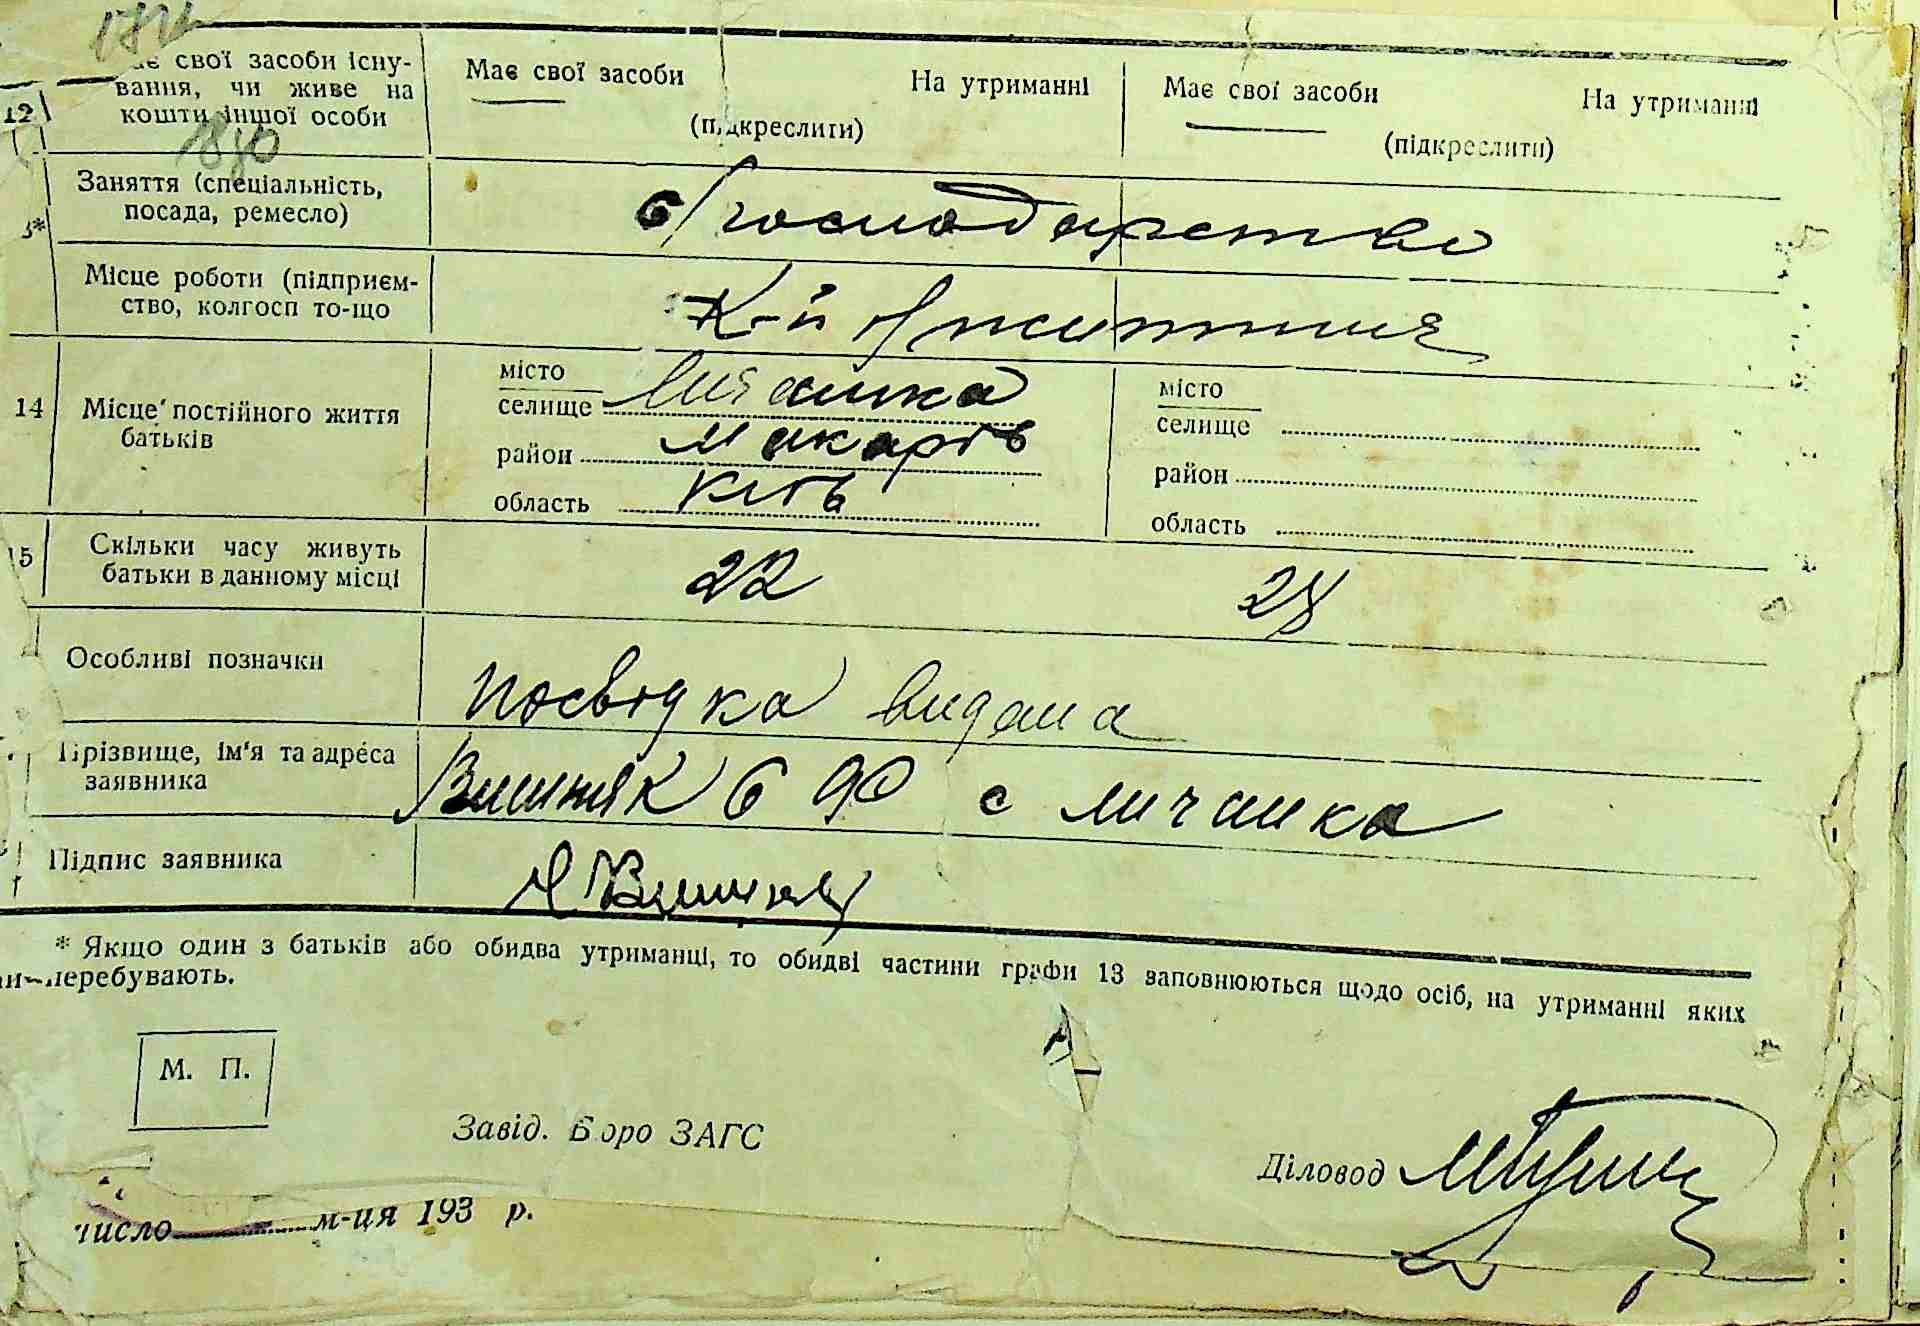 свої засоби існу-
вання, чи живе на
кошти іншої особи
Має свої засоби На утриманні
(підкреслити)
Має свої засоби На утриманні
(підкреслити)
12
Заняття (спеціальність,
посада, ремесло)
с/господарство
Місце роботи (підприєм-
ство, колгосп то-що
життя
14
Місце постійного життя
батьків
місто
селище Личанка
район Макарів
область Київ
місто
селище
район
область
15
Скільки часу живуть
батьки в данному місці
22 28
Особливі позначки
Посвідка видана
Прізвище, ім'я та адреса
заявника
Вишняк с личанка
Підпис заявника
* Якщо один з батьків або обидва утриманці, то обидві частини графи 13 заповнюються щодо осіб, на утриманні яких
перебувають.
М. П.
Завід. Бюро ЗАГС
Діловод
число м-ця 193 р.